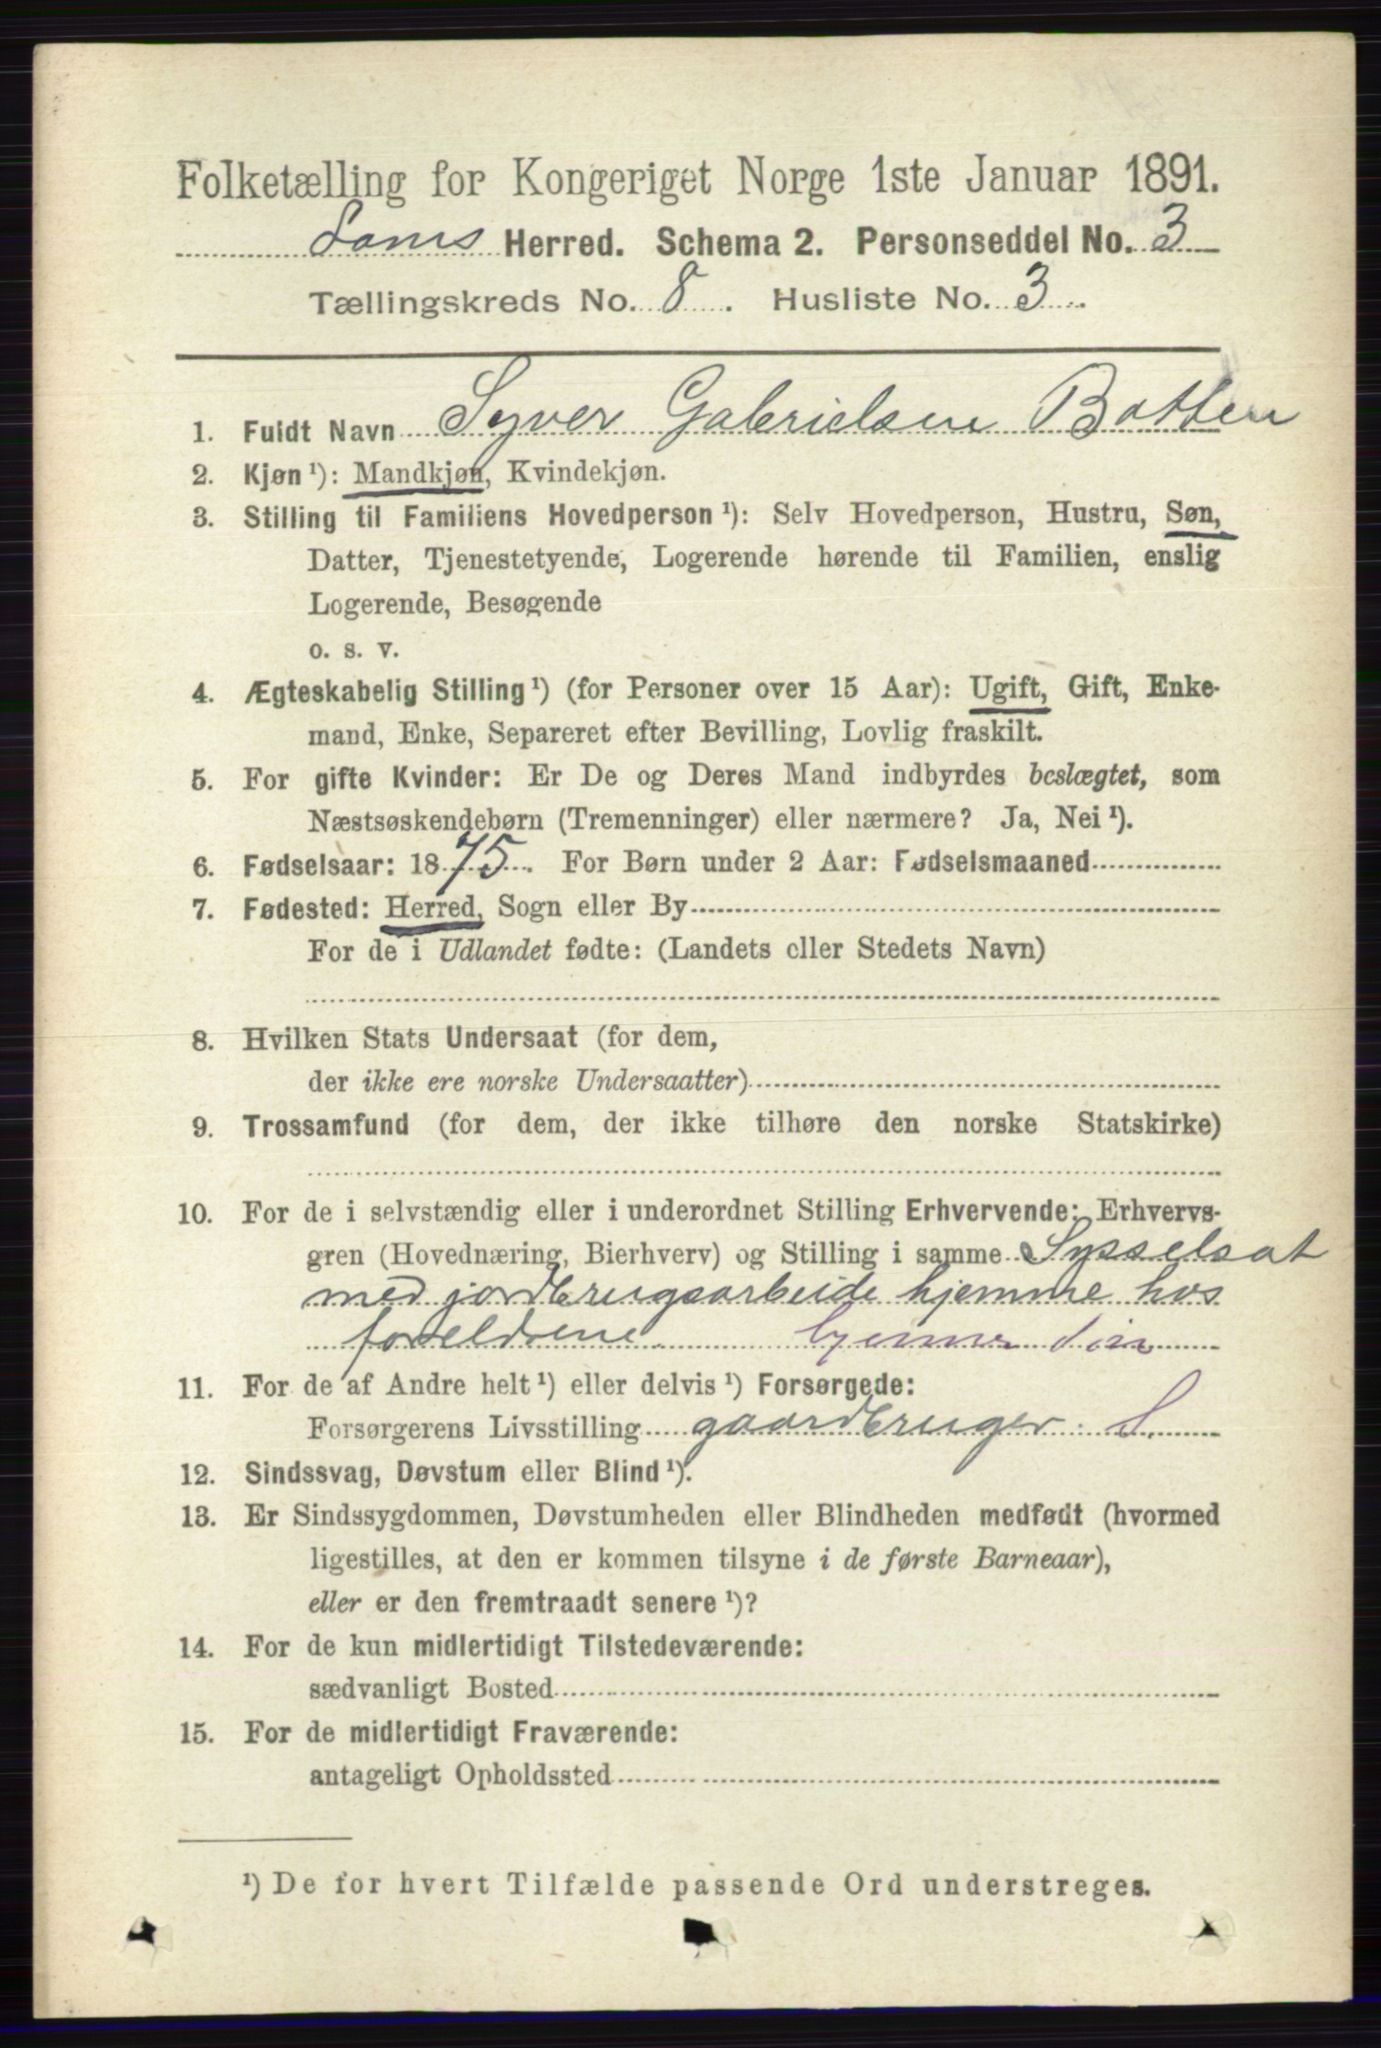 Folketælling for Kongeriget Norge 1ste Januar 1891.
Loms Herred. Schema 2. Personseddel No. 3
Tællingskreds No. 8. Husliste No. 3.
1. Fuldt Navn Syver Gabrielsen Botten
2. Kjøn ¹): Mandkjøn, Kvindekjøn.
3. Stilling til Familiens Hovedperson ¹): Selv Hovedperson, Hustru, Søn,
Datter, Tjenestetyende, Logerende hørende til Familien, enslig
Logerende, Besøgende
o. s. v.
4. Ægteskabelig Stilling ¹) (for Personer over 15 Aar): Ugift, Gift, Enke-
mand, Enke, Separeret efter Bevilling, Lovlig fraskilt.
5. For gifte Kvinder: Er De og Deres Mand indbyrdes beslægtet, som
Næstsøskendebørn (Tremenninger) eller nærmere? Ja, Nei ¹).
6. Fødselsaar: 1875. For Børn under 2 Aar: Fødselsmaaned
7. Fødested: Herred, Sogn eller By
For de i Udlandet fødte: (Landets eller Stedets Navn)
8. Hvilken Stats Undersaat (for dem,
der ikke ere norske Undersaatter)
9. Trossamfund (for dem, der ikke tilhøre den norske Statskirke)
10. For de i selvstændig eller i underordnet Stilling Erhvervende: Erhvervs-
gren (Hovednæring, Bierhverv) og Stilling i samme Sysselsat
med jordbrugsarbeide hjemme hos
foreldrene.
11. For de af Andre helt ¹) eller delvis ¹) Forsørgede:
Forsørgerens Livsstilling gaardbruger. S.
12. Sindssvag, Døvstum eller Blind ¹).
13. Er Sindssygdommen, Døvstumheden eller Blindheden medfødt (hvormed
ligestilles, at den er kommen tilsyne i de første Barneaar),
eller er den fremtraadt senere ¹)?
14. For de kun midlertidigt Tilstedeværende:
sædvanligt Bosted
15. For de midlertidigt Fraværende:
antageligt Opholdssted
¹) De for hvert Tilfælde passende Ord understreges.